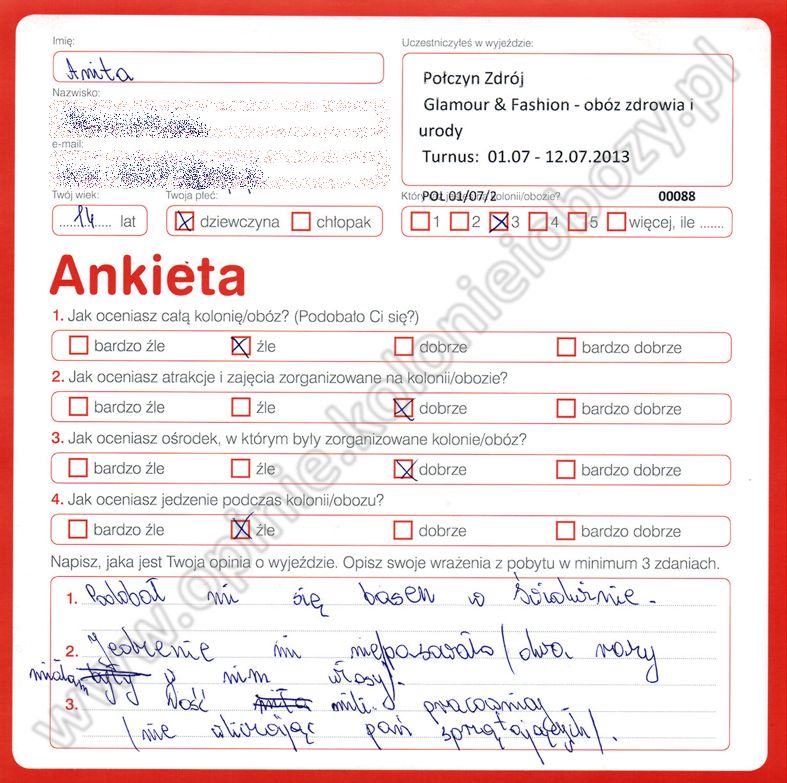 Imię:
Anita
Uczestniczyłeś w wyjeździe:
Połczyn Zdrój
Glamour & Fashion - obóz zdrowia i
urody
Turnus: 01.07 - 12.07.2013
Nazwisko:
e-mail:
Twój wiek:
14 lat
Twoja płeć:
dziewczyna chłopak
POL 01/07/2 00088
1 2 3 4 5 więcej, ile .......
Ankieta
1. Jak oceniasz całą kolonię/obóz? (Podobało Ci się?)
bardzo źle źle dobrze bardzo dobrze
2. Jak oceniasz atrakcje i zajęcia zorganizowane na kolonii/obozie?
bardzo źle źle dobrze bardzo dobrze
3. Jak oceniasz ośrodek, w którym były zorganizowane kolonie/obóz?
bardzo źle źle dobrze bardzo dobrze
4. Jak oceniasz jedzenie podczas kolonii/obozu?
bardzo źle źle dobrze bardzo dobrze
Napisz, jaka jest Twoja opinia o wyjeździe. Opisz swoje wrażenia z pobytu w minimum 3 zdaniach.
1. Podobał mi się basen w Świdwinie.
2. Jedzenie mi niepasowało (dwa razy
miałam w nim włosy).
3. Dość mili pracownicy
(nie wliczając pań sprzątających).
www.opinie.kolonieiobozy.pl